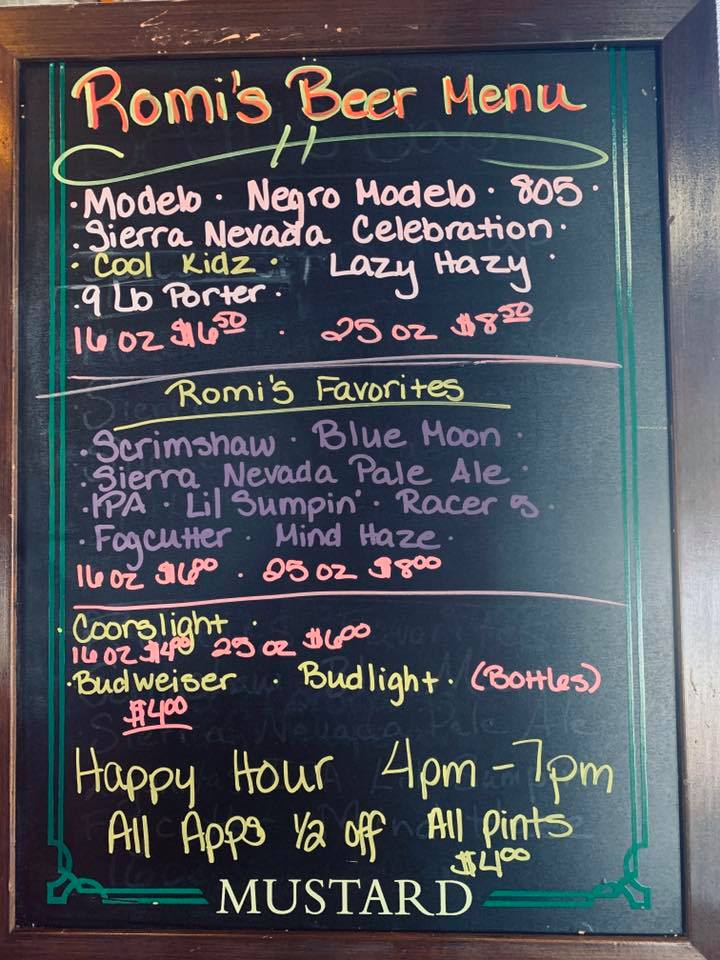 Romi's Beer Menu
· Modelo · Negro Modelo · 805 ·
· Sierra Nevada Celebration ·
· Cool Kidz · Lazy Hazy ·
· 9 Lb Porter ·
16 oz $6.50 · 25 oz $8.50
Romi's Favorites
· Scrimshaw · Blue Moon ·
· Sierra Nevada Pale Ale ·
· IPA · Lil Sumpin' · Racer 5 ·
· Fogcutter · Mind Haze ·
16 oz $6.00 · 25 oz $8.00
· Coorslight ·
16 oz $4.00 25 oz $6.00
· Budweiser · Budlight · (Bottles)
$4.00
Happy Hour 4pm - 7pm
All Apps 1/2 off All pints
$4.00
MUSTARD